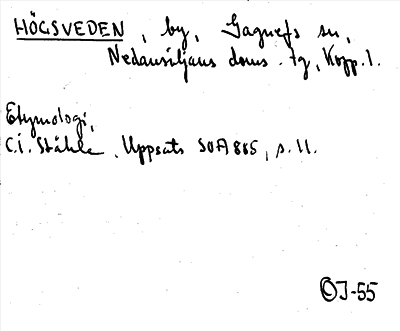 HÖGSVEDEN, by, Gagnefs sn,
Nedansiljans doms. tg, Kopp. l.
Etymologi,
C.I. Ståhle. Uppsats SOFI 865, s. 11.
OJ-55